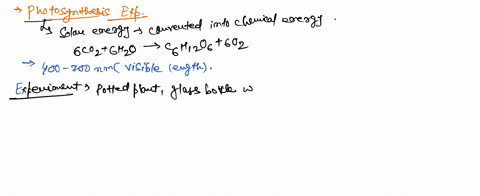 → Photosynthesis Exp.
↳ Solar energy → converted into chemical energy.
6CO2 + 6H2O → C6H12O6 + 6O2
→ 400-700 nm ( visible length).
Experiment → Potted plant, glass bottle w